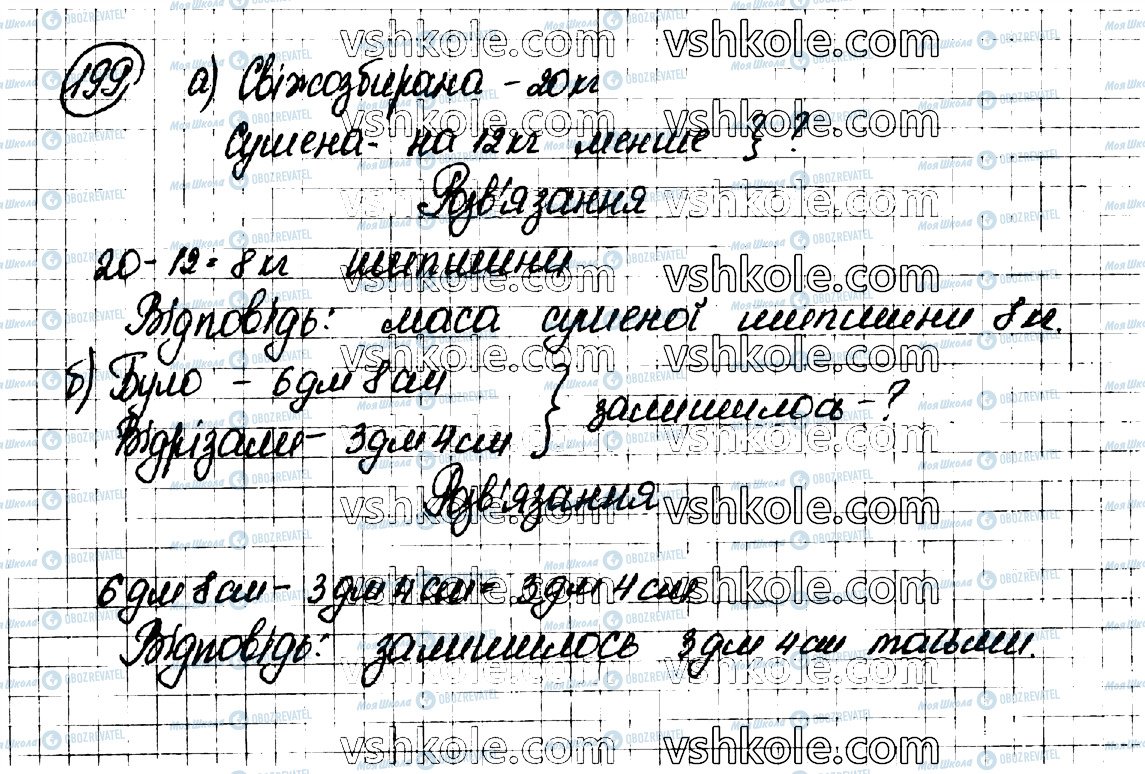 199 а) Свіжозбирана - 20 кг
Сушена - на 12 кг менше } ?
Розв'язання
20 - 12 = 8 кг шипшини
Відповідь: маса сушеної шипшини 8 кг.
б) Було - 6 дм 8 см
Відрізали - 3 дм 4 см } залишилось - ?
Розв'язання
6 дм 8 см - 3 дм 4 см = 3 дм 4 см
Відповідь: залишилось 3 дм 4 см тасьми.
vshkole.com
Моя Школа OBOZREVATEL